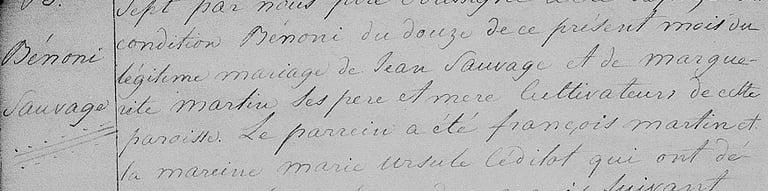 Bénoni
Sauvage
Sept par nous
condition Bénoni du douze de ce présent mois du
légitime mariage de Jean Sauvage et de margue-
rite martin ses pere et mere Cultivateurs de cette
paroisse. Le parrein a été françois martin et
la mareine marie ursule Céditot qui ont dé
suivant